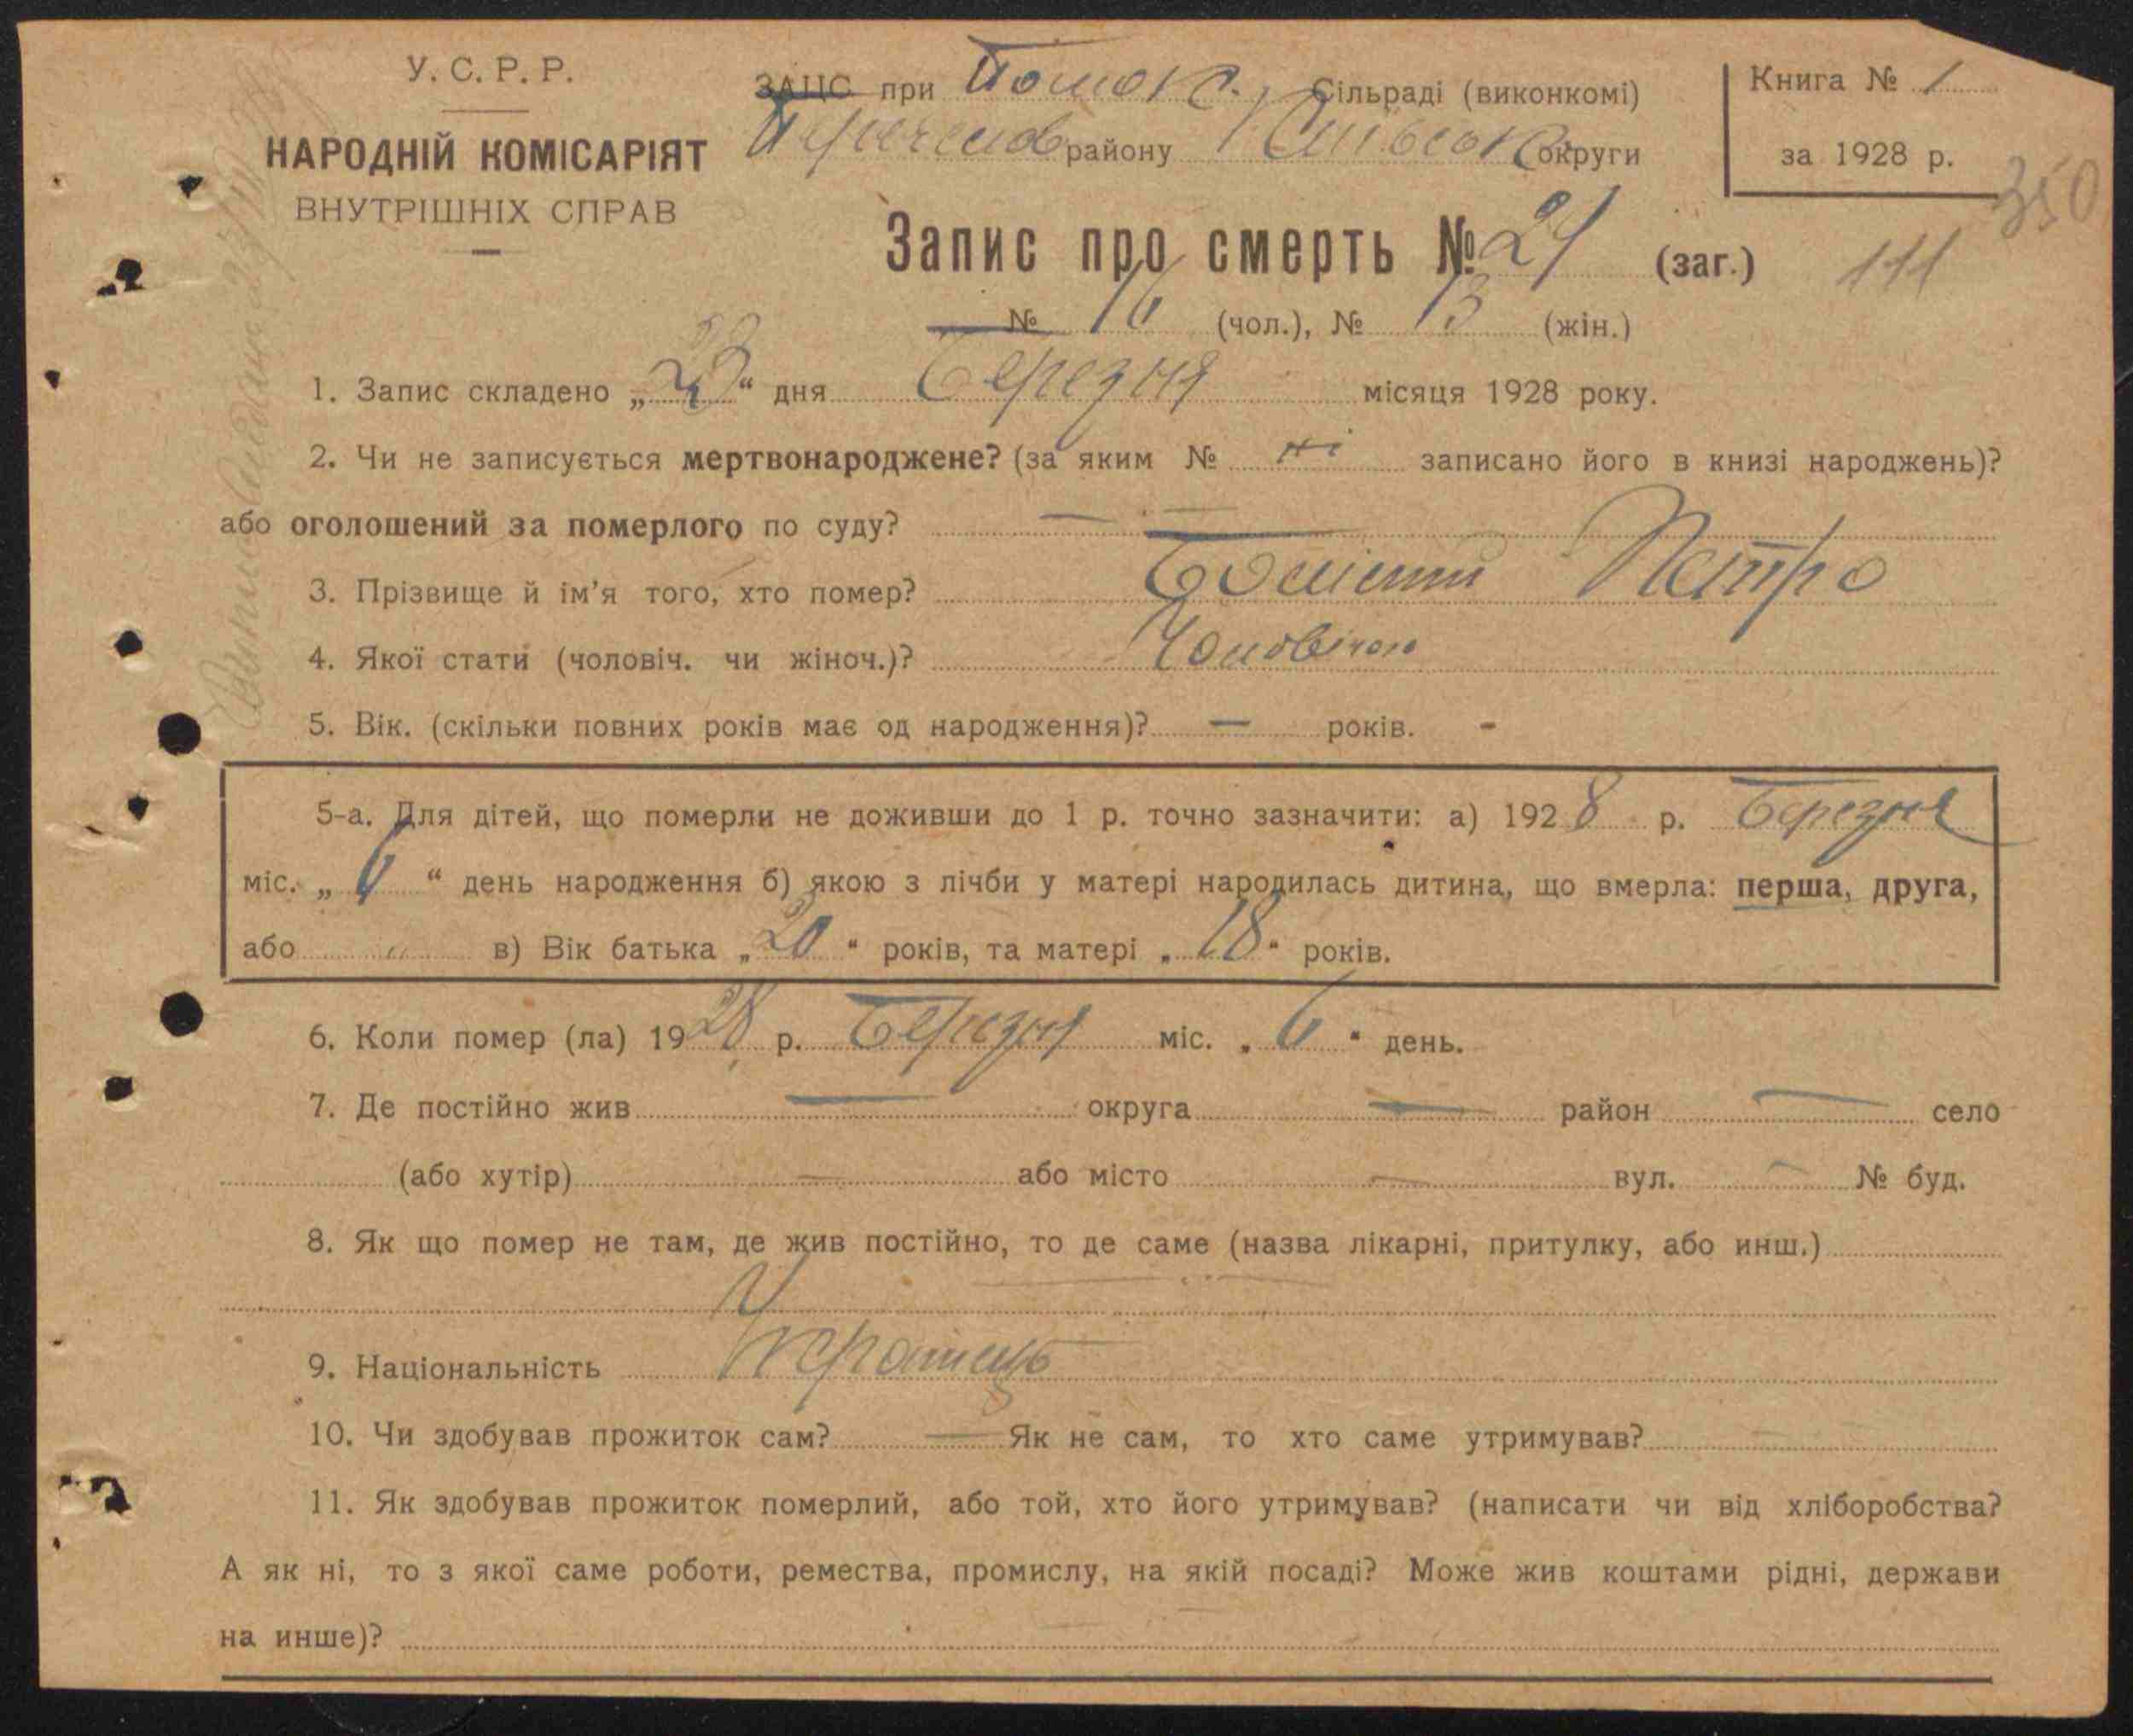 У. С. Р. Р.
НАРОДНІЙ КОМІСАРІЯТ
ВНУТРІШНІХ СПРАВ
ЗАЦС при Сільраді (виконкомі)
району округи
Книга № 1
за 1928 р.
350
Запис про смерть № (заг.)
111
№ 16 (чол.), № 13 (жін.)
1. Запис складено „ “ дня Березня місяця 1928 року.
2. Чи не записується мертвонароджене? (за яким № ні записано його в книзі народжень)?
або оголошений за померлого по суду? —
3. Прізвище й ім'я того, хто помер? Петро
4. Якої стати (чоловіч. чи жіноч.)? Чоловічої
5. Вік. (скільки повних років має од народження)? — років. -
5-а. Для дітей, що померли не доживши до 1 р. точно зазначити: а) 1928 р. Березня
міс. „ 6 “ день народження б) якою з лічби у матері народилась дитина, що вмерла: перша, друга,
або " в) Вік батька „ 20 “ років, та матері „ 18 “ років.
6. Коли помер (ла) 1928 р. Березня міс. „ 6 “ день.
7. Де постійно жив — округа — район — село
(або хутір) — або місто — вул. — № буд.
8. Як що помер не там, де жив постійно, то де саме (назва лікарні, притулку, або инш.)
9. Національність Украінець
10. Чи здобував прожиток сам? — Як не сам, то хто саме утримував?
11. Як здобував прожиток померлий, або той, хто його утримував? (написати чи від хліборобства?
А як ні, то з якої саме роботи, ремества, промислу, на якій посаді? Може жив коштами рідні, держави
на инше)?